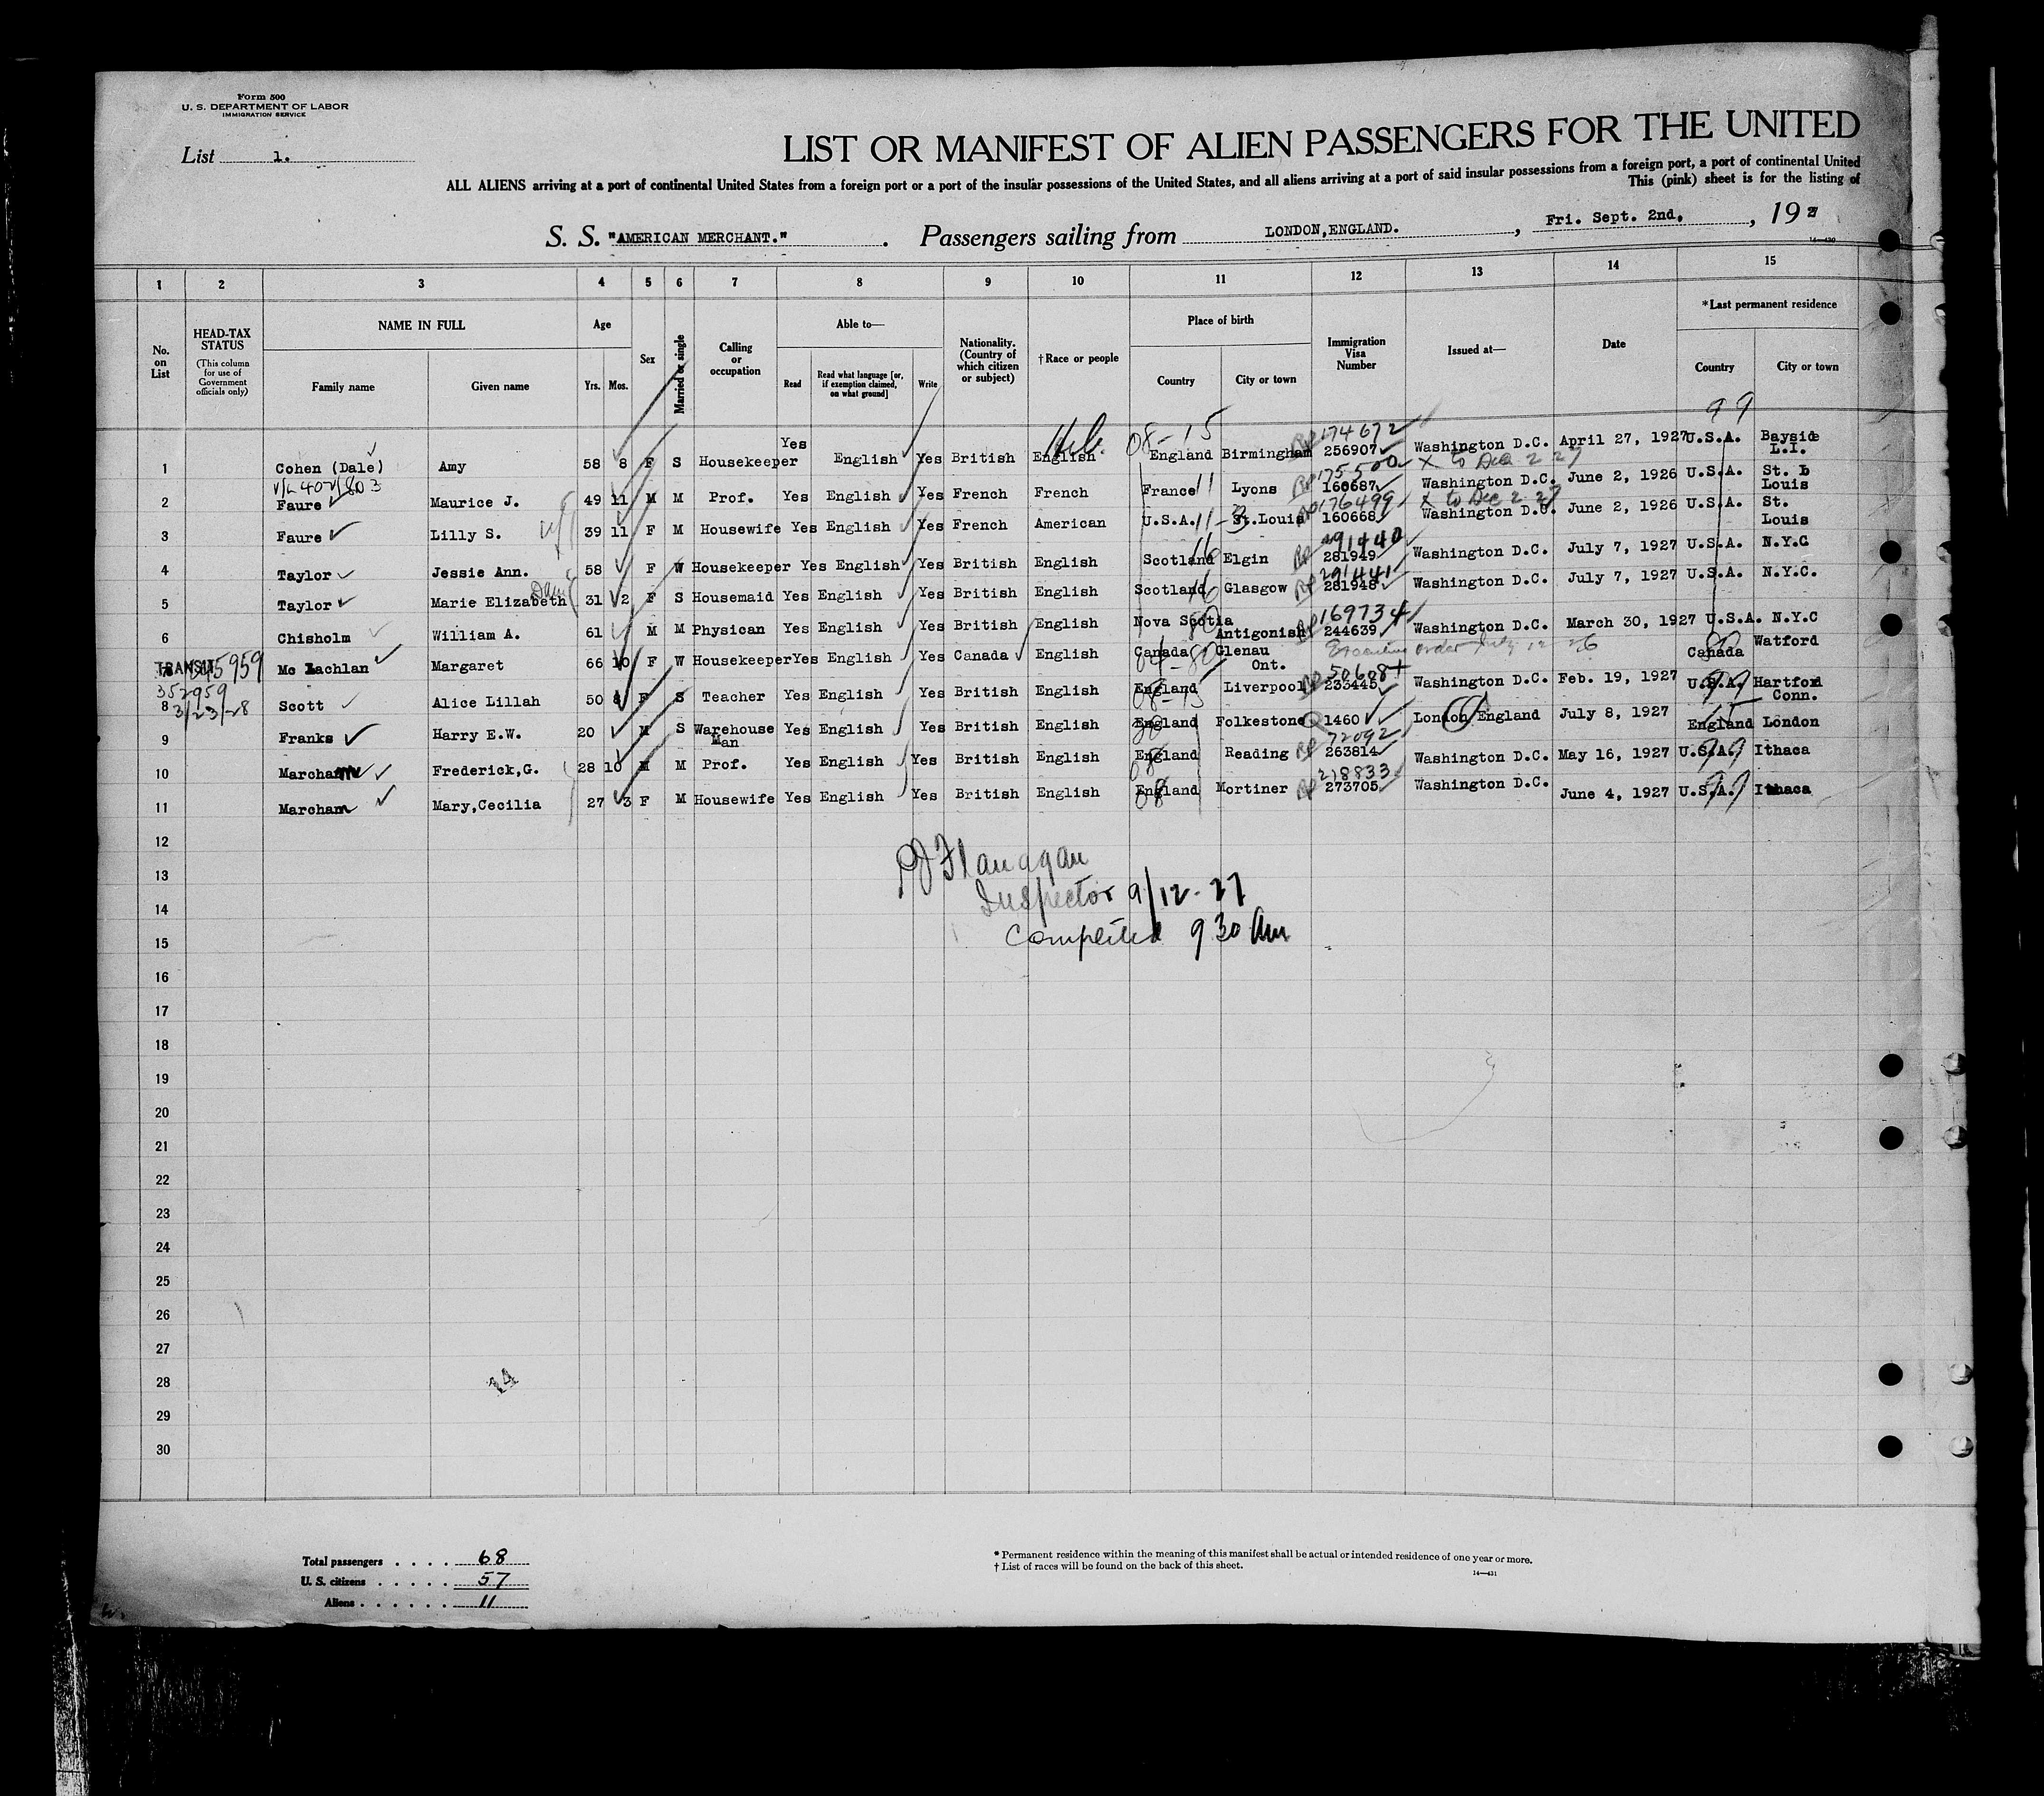 Form 500
U. S. DEPARTMENT OF LABOR
IMMIGRATION SERVICE
List 1.
LIST OR MANIFEST OF ALIEN PASSENGERS FOR THE UNITED
ALL ALIENS arriving at a port of continental United States from a foreign port or a port of the insular possessions of the United States, and all aliens arriving at a port of said insular possessions from a foreign port, a port of continental United
This (pink) sheet is for the listing of
S. S. "AMERICAN MERCHANT." . Passengers sailing from LONDON,ENGLAND. , Fri. Sept. 2nd. , 192
14—430
1 2 3 4 5 6 7 8 9 10 11 12 13 14 15
No. on List
HEAD-TAX STATUS (This column for use of Government officials only)
NAME IN FULL Family name Given name
Age Yrs. Mos.
Sex
Married or single
Calling or occupation
Able to— Read Read what language [or, if exemption claimed, on what ground] Write
Nationality. (Country of which citizen or subject)
†Race or people
Place of birth Country City or town
Immigration Visa Number
Issued at—
Date
*Last permanent residence Country City or town
99
1 Cohen (Dale) Amy 58 8 F S Housekeeper Yes English Yes British English Heb. 08-15 England Birmingham RP 174672 256907 Washington D.C. April 27, 1927 U.S.A. Bayside L.I.
2 Faure Maurice J. 49 11 M M Prof. Yes English Yes French French France 11 Lyons RP 175500 160687 Washington D.C. X to Dec 2 27 June 2, 1926 U.S.A. St. L Louis
3 Faure Lilly S. 39 11 F M Housewife Yes English Yes French American U.S.A. St.Louis RP 176499 160668 Washington D.C. X to Dec 2 27 June 2, 1926 U.S.A. St. Louis
4 Taylor Jessie Ann. 58 F W Housekeeper Yes English Yes British English Scotland 16 Elgin RP 291440 281949 Washington D.C. July 7, 1927 U.S.A. N.Y.C
5 Taylor Marie Elizabeth 31 2 F S Housemaid Yes English Yes British English Scotland 16 Glasgow RP 291441 281948 Washington D.C. July 7, 1927 U.S.A. N.Y.C.
6 Chisholm William A. 61 M M Physican Yes English Yes British English Nova Scotia 80 Antigonish RP 169734 244639 Washington D.C. March 30, 1927 U.S.A. N.Y.C
TRANSIT Mc Lachlan Margaret 66 10 F W Housekeeper Yes English Yes Canada English Canada Glenau Ont. Executive order July 12 26 Canada 80 Watford
352959
8 3/23/28 Scott Alice Lillah 50 F S Teacher Yes English Yes British English England 08-15 Liverpool RP 50608 233445 Washington D.C. Feb. 19, 1927 U.S.A. 99 Hartford Conn.
9 Franks Harry E.W. 20 M S Warehouse Man Yes English Yes British English England 08 Folkestone Q 1460 London England July 8, 1927 England 15 London
10 Marcham Frederick,G. 28 10 M M Prof. Yes English Yes British English England 08 Reading RP 72092 263814 Washington D.C. May 16, 1927 U.S.A. 99 Ithaca
11 Marcham Mary,Cecilia 27 3 F M Housewife Yes English Yes British English England 08 Mortiner RP 218833 273705 Washington D.C. June 4, 1927 U.S.A. 99 Ithaca
12
PJ Flanagan
13
Inspector 9/12-27
14
Completed 9 30 Am
15
16
17
18
19
20
21
22
23
24
25
26
27
28 14
29
30
Total passengers . . . . 68
U. S. citizens . . . . . 57
Aliens . . . . . . 11
* Permanent residence within the meaning of this manifest shall be actual or intended residence of one year or more.
† List of races will be found on the back of this sheet.
14—431